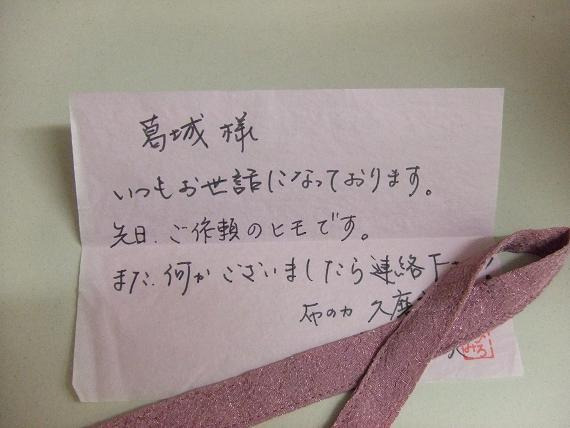 葛城 様
いつもお世話になっております。
先日、ご依頼のヒモです。
また、何かございましたら連絡下
布のカ 久
みろ